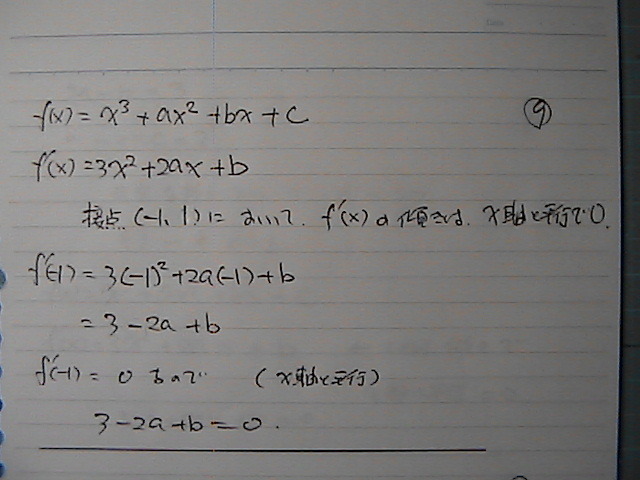 f(x) = x³ + ax² + bx + c ⑨
f'(x) = 3x² + 2ax + b
接点 (-1, 1) において、f'(x) の傾きは、x軸と平行で 0.
f'(-1) = 3(-1)² + 2a(-1) + b
= 3 - 2a + b
f'(-1) = 0 なので (x軸と平行)
3 - 2a + b = 0.